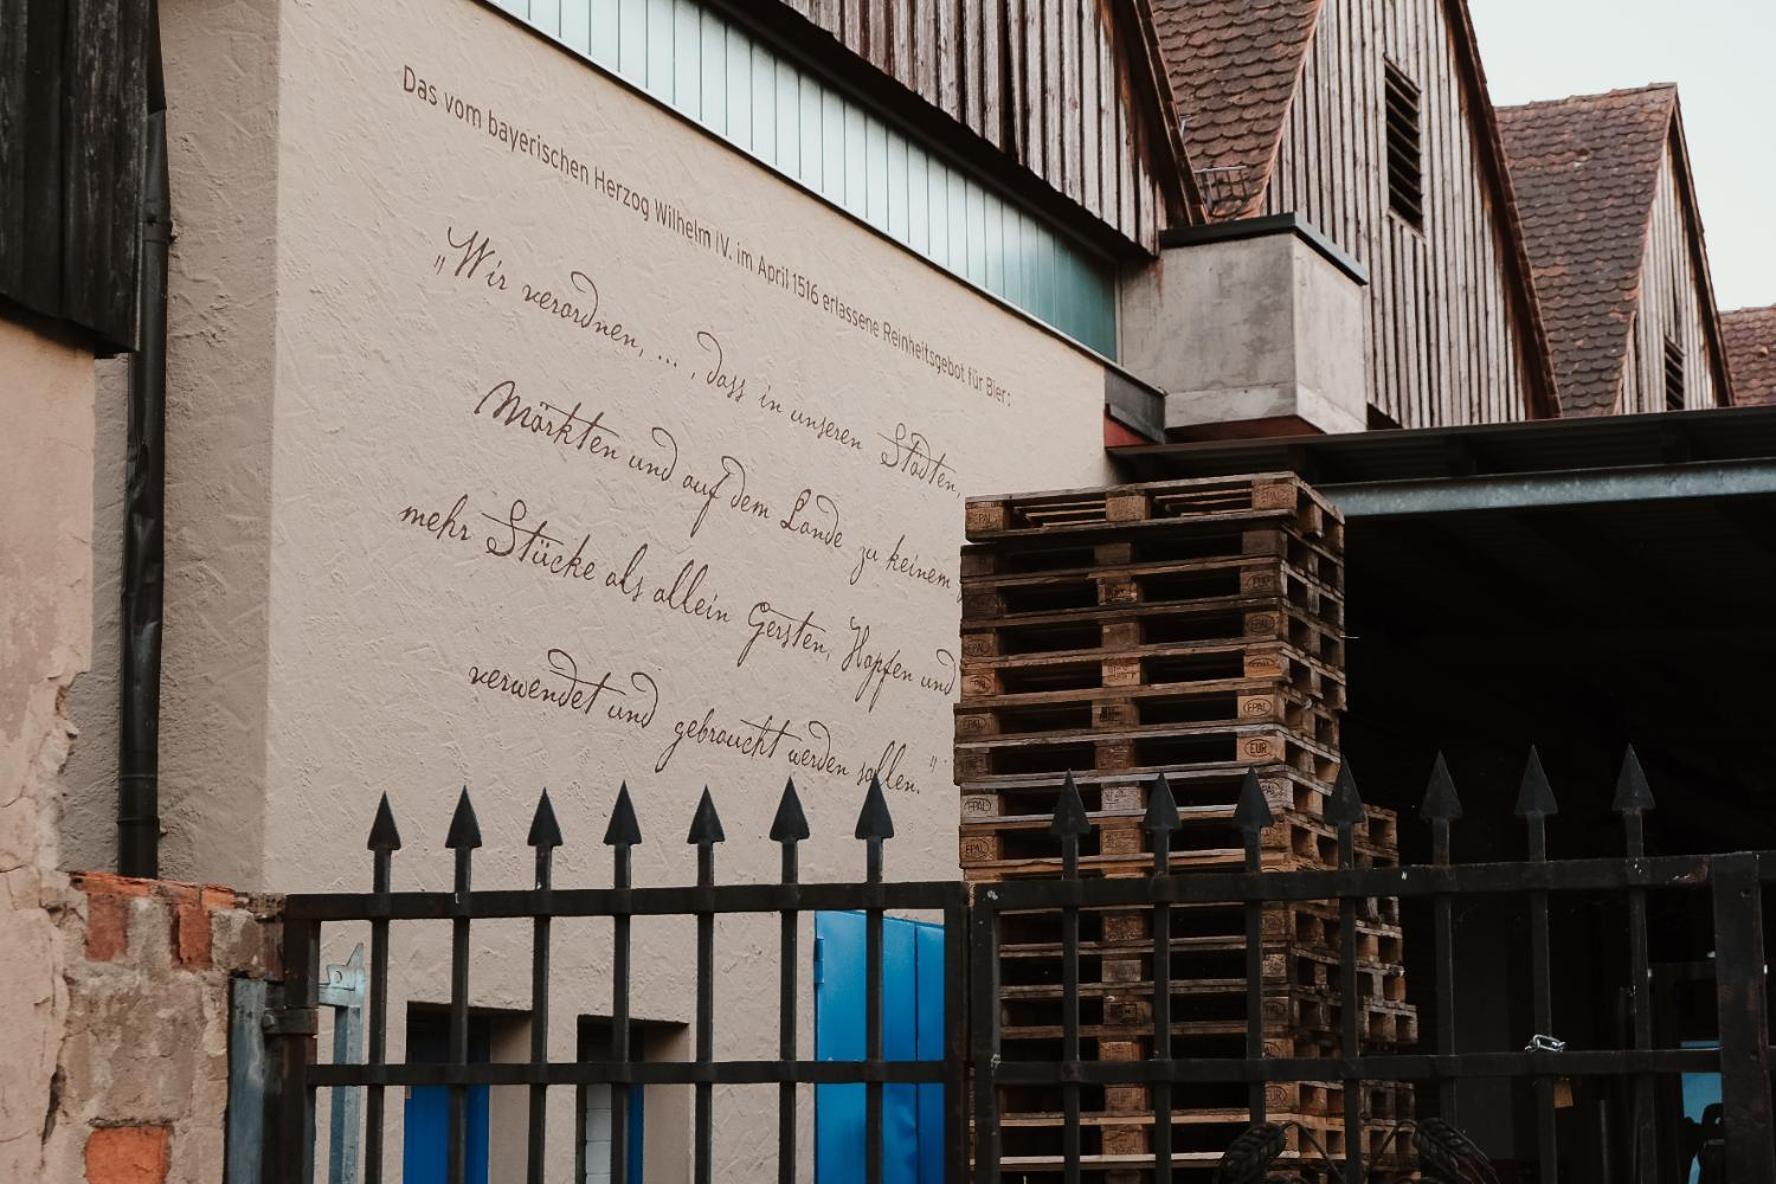 Das vom bayerischen Herzog Wilhelm IV. im April 1516 erlassene Reinheitsgebot für Bier:
„Wir verordnen, ... , dass in unseren Städten,
Märkten und auf dem Lande zu keinem
mehr Stücke als allein Gersten, Hopfen und
verwendet und gebraucht werden sollen.“
EPAL
EPAL
EUR
EPAL
EPAL
EUR